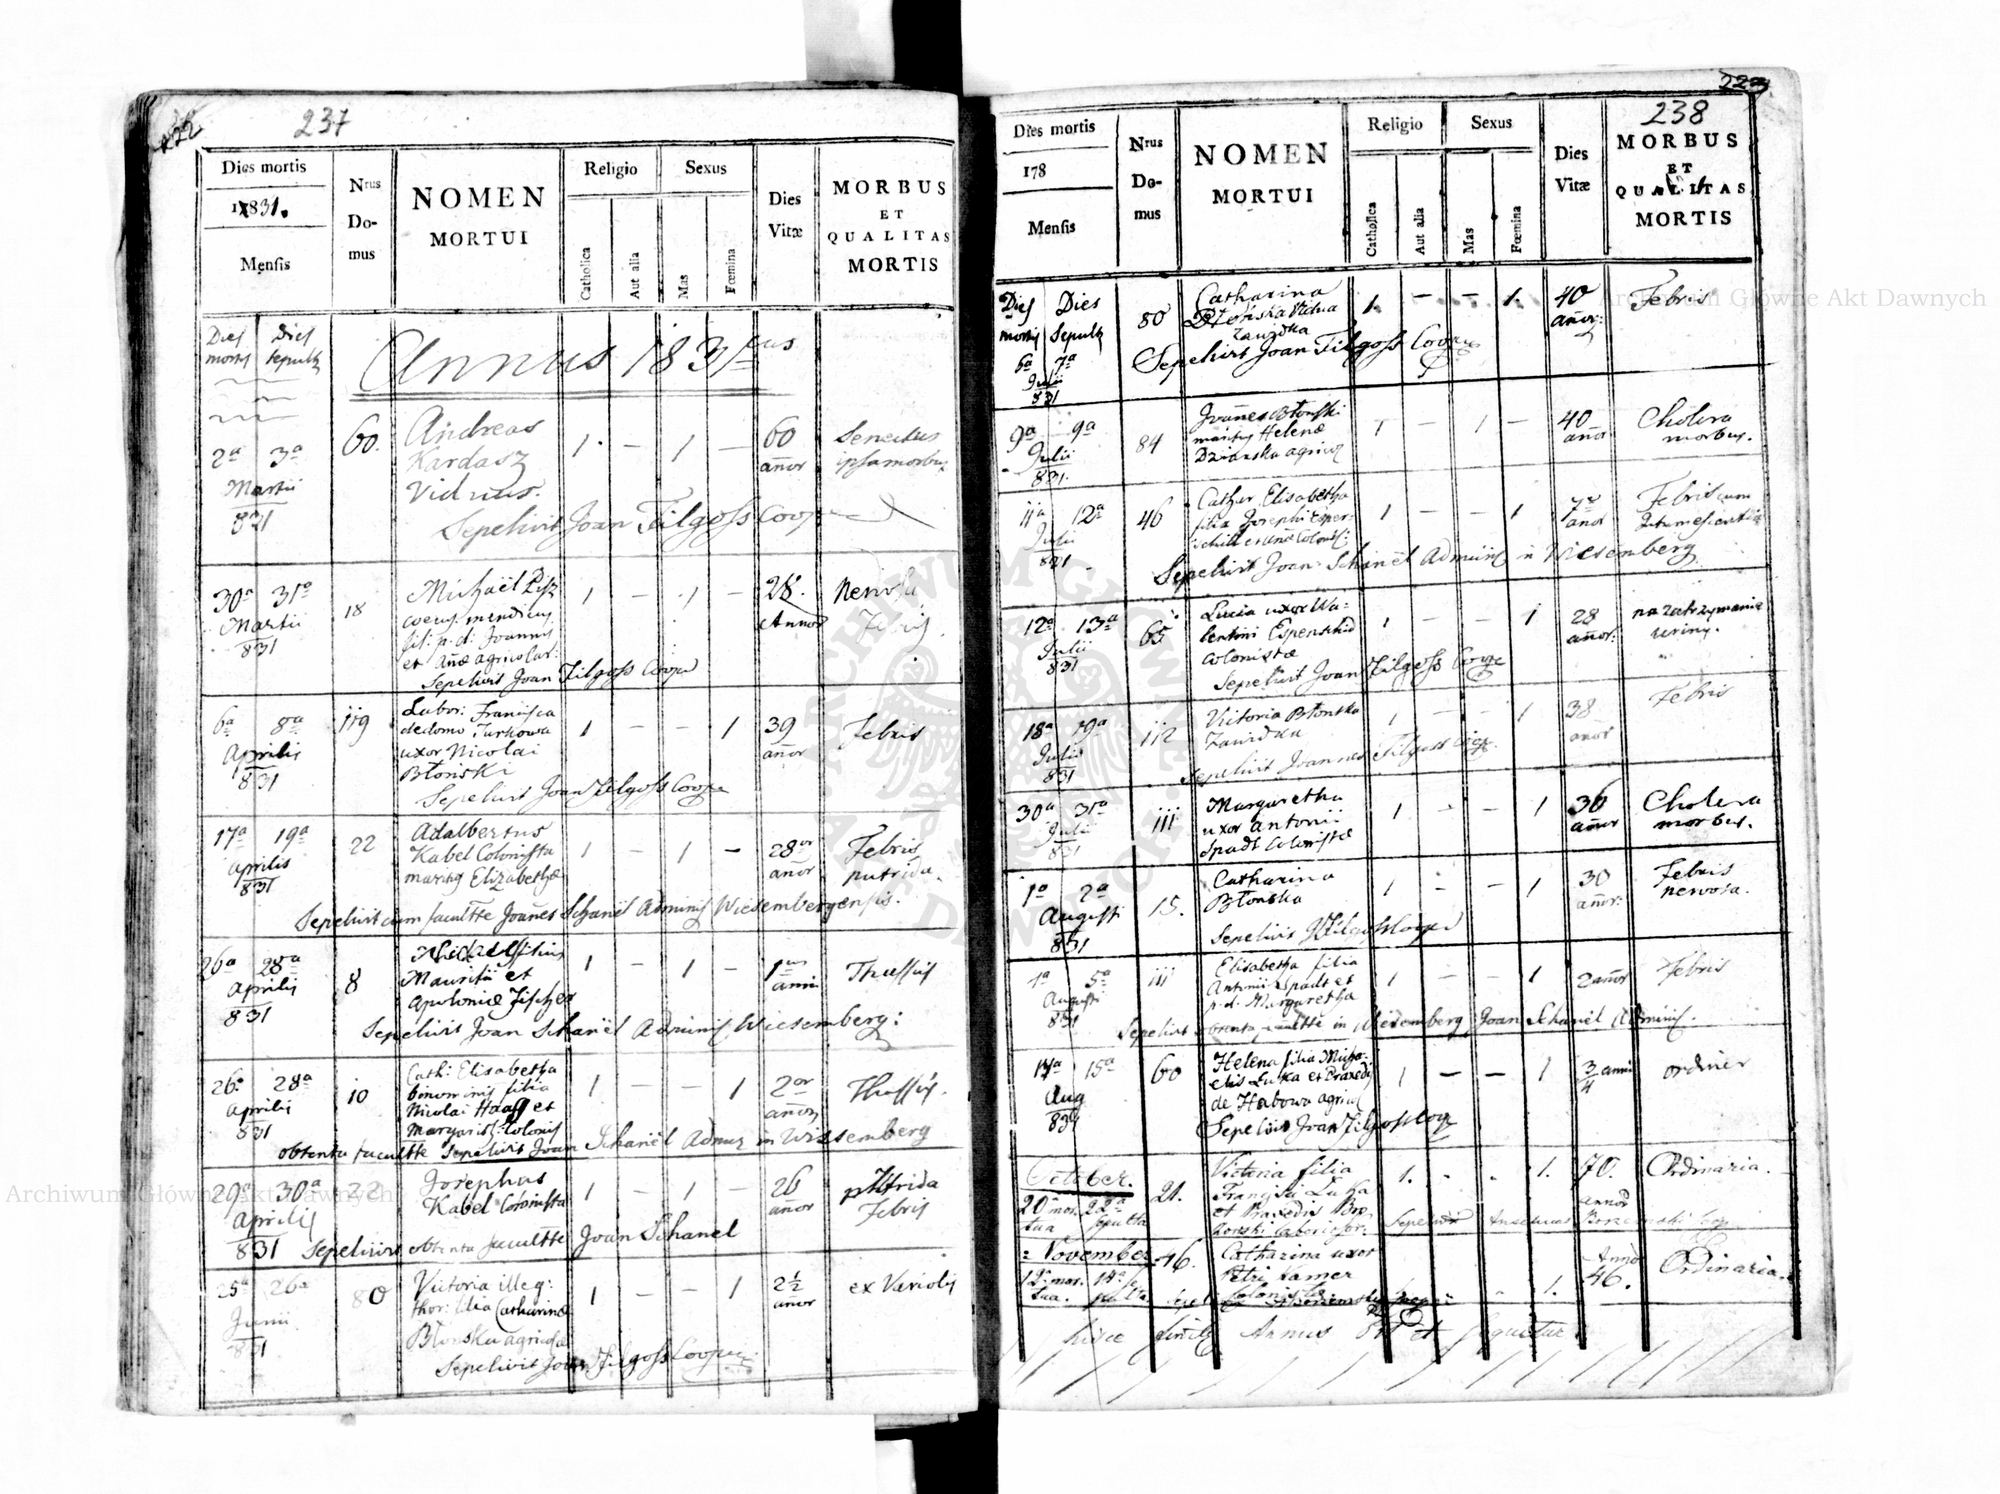 222
237
Dies mortis
1831.
Mensis
Nrus
Do-
mus
NOMEN
MORTUI
Religio
Catholica
Aut alia
Sexus
Mas
Fœmina
Dies
Vitæ
MORBUS
ET
QUALITAS
MORTIS
Dies mortis
Dies sepult
Annus 1831mus
2a 3a
Martii
831
60.
Andreas
Kardasz
Viduus.
1. – 1 –
60
añor
Senectus
ipsa morbus
Sepelivit Joan Filgoss Coop
30a 31a
Martii
831
18
Michaël
coecus mendicus
fil: p: d: Joannis
et Añæ agricolar:
1 – 1 –
28.
Annor
Nervosa
Febris.
Sepelivit Joan Filgoss Coop
6a 8a
Aprilis
831
119
Francisca
de domo Turkowa
uxor Nicolai
Błonski
1 – – 1
39
añor
Febris
Sepelivit Joan Filgoss Coop
17a 19a
Aprilis
831
22
Adalbertus
Kabel Colonista
maritus Elizabethæ
1 – 1 –
28
añor
Febris
putrida.
Sepelivit cum facultte Joañes Schanël Adminis Wiesembergensis.
26a 28a
Aprilis
831
8
filius
Mauritii et
Apoloniæ Fischer
1 – 1 –
1
anni
Thussis
Sepelivit Joan Schanël Adminis Wiesemberg:
26a 28a
Aprilis
831
10
Cath: Elisabetha
binominis filia
Nicolai Haass et
Margarith: Colonis
1 – – 1
2or
añor
Thussis.
obtenta facultte Sepelivit Joan Schanël Admus in Wiesemberg
29a 30a
Aprilis
831
22
Josephus
Kabel Colonista
1 – 1 –
26
añor
putrida
Febris
Sepelivit obtenta facultte Joan Schanel
25a 26a
Junii
831
80
Victoria illeg:
thor: filia Catharinæ
Błonska agricolæ
1 – – 1
2½
añor
ex Variolis
Sepelivit Joan Filgoss Coop
223
238
Dies mortis
178
Mensis
Nrus
Do-
mus
NOMEN
MORTUI
Religio
Catholica
Aut alia
Sexus
Mas
Fœmina
Dies
Vitæ
MORBUS
ET
QUALITAS
MORTIS
Dies mortis
Dies Sepult
6a 7a
Julii
831
80
Catharina
Błonska Vidua
Zawidka
1. – – 1.
40
añor:
Febris
Sepelivit Joan Filgoss Coop
9a 9a
Julii
831.
84
Joañes Błonski
maritus Helenæ
Dzianska agricol
1 – 1 –
40
añor
Cholera
morbus.
11a 12a
Julii
831
46
Cathar Elisabetha
filia Josephi Esper-
schitt
1 – – 1
7
añor
Febris cum
Intumescentia
Sepelivit Joan Schanël Adminis in Wiesemberg
12a 13a
Julii
831
65
Lucia uxor Va-
lentini Espenschid
Colonistæ
1 – – 1
28
añor:
na zatrzymanie
uriny.
Sepelivit Joan Filgoss Coop
18a 19a
Julii
831
112
Victoria Błonska
Zawidka
1 – – 1
38
añor
Febris
Sepelivit Joannes Filgoss Coop.
30a 31a
Julii
831
111
Margaretha
uxor Antonii
Spadt Colonistæ
1 – – 1
36
añor
Cholera
morbus.
1a 2a
Augusti
831
15.
Catharina
Błonska
1 – – 1
30
añor:
Febris
nervosa.
Sepelivit J Filgoss Coop
4a 5a
Augusti
831
111
Elisabetha filia
Antonii Spadt et
p. d. Margaretha
1 – – 1
2 añor
Febris
Sepelivit obtenta facultte in Wiesemberg Joan Schanël Adminis.
14a 15a
Aug
831
60
Helena filia Micha-
elis Luka et Praxedis
de Habowa agricol
1 – – 1
3/4 anni
ordiner
Sepelivit Joan Filgoss Coop
October.
20a mor. 22a
tua sepulta
21.
Victoria filia
Francisci Luka
et Praxedis
1. - - 1.
70.
annor
Ordinaria.
November
12a mor. 14a se
tua. pulta
46.
Catharina uxor
Petri Kamer
Colonistæ
- 1.
Anno
46.
Ordinaria.
hicce finitus Annus et sequitur
Archiwum Główne Akt Dawnych
Archiwum Główne Akt Dawnych
ARCHIWUM GŁÓWNE AKT DAWNYCH